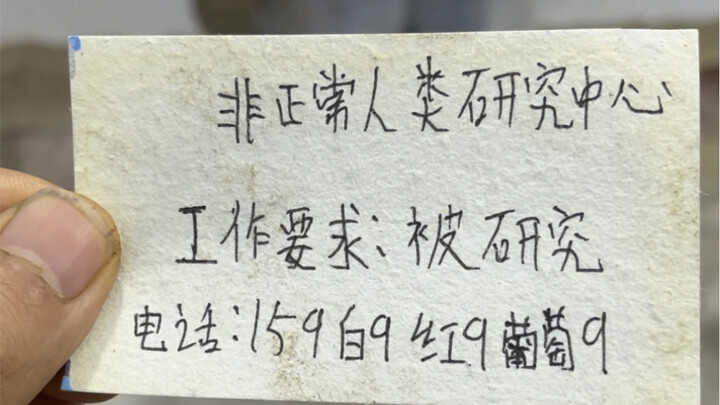 非正常人类研究中心
工作要求:被研究
电话:159白9红9葡萄9